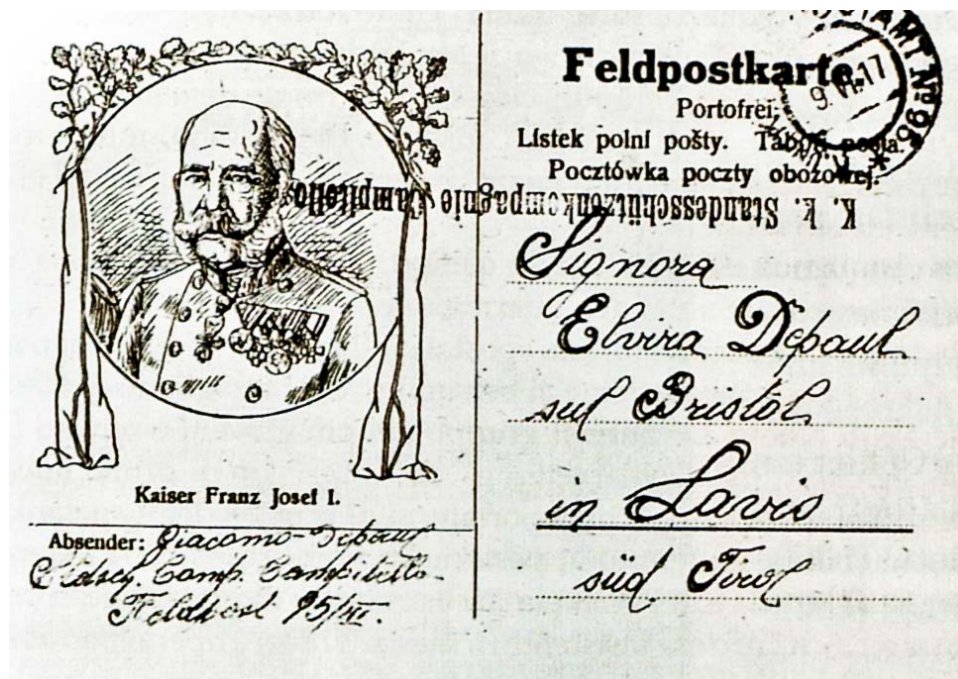 Feldpostkarte.
Portofrei.
Lístek polní pošty. Tábori posta.
Pocztówka poczty obozowej.
K. k. Standesschützenkompagnie Campitello
Signora
Elvira Depaul
sud Bristol
in Lavis
sud Tirol
Kaiser Franz Josef I.
Absender: Giacomo Depaul
Comp. Campitello
Feldpost 95/III.